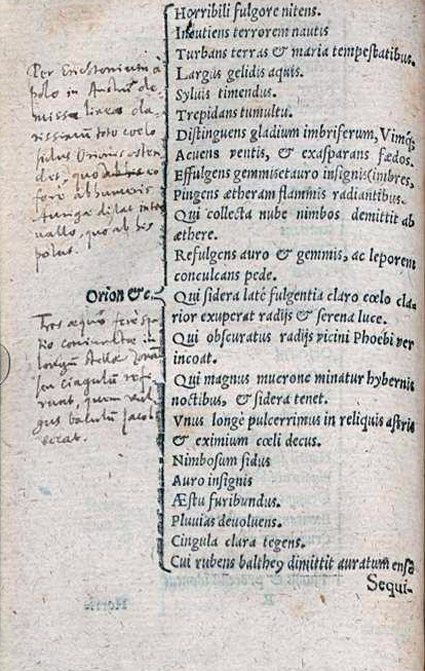 Horribili fulgore nitens.
Incutiens terrorem nautis
Turbans terras & maria tempestatibus.
Largus gelidis aquis.
Syluis timendus.
Trepidans tumultu.
Distinguens gladium imbriferum, Vimq;
Acuens ventis, & exasparans fœdos.
Effulgens gemmisetauro insignis(imbres,
Pingens ætheram flammis radiantibus.
Qui collecta nube nimbos demittit ab
æthere.
Refulgens auro & gemmis, ac leporem
conculcans pede.
Orion &c.
Qui sidera latè fulgentia claro cœlo cla-
rior exuperat radijs & serena luce.
Qui obscuratus radijs vicini Phoebi ver
incoat.
Qui magnus mucrone minatur hybernis
noctibus, & sidera tenet.
Vnus longè pulcerrimus in reliquis astris
& eximium cœli decus.
Nimbosum sidus
Auro insignis
Æstu furibundus.
Pluuias deuoluens.
Cingula clara tegens.
Cui rubens balthey dimittit auratum ense
Sequi-
Per Erichtonium à
polo in Austrum de
missa linea cla
rissimum toto coelo
sidus Orionis osten
det, quod
ferè ab humeris
Aurigæ distat inter
uallo, quo ab his
polus.
Tres æquo ferè spa
tio
stellæ Zonam
seu Cingulum refe
runt, quem
gus baculum Jacobi
vocat.